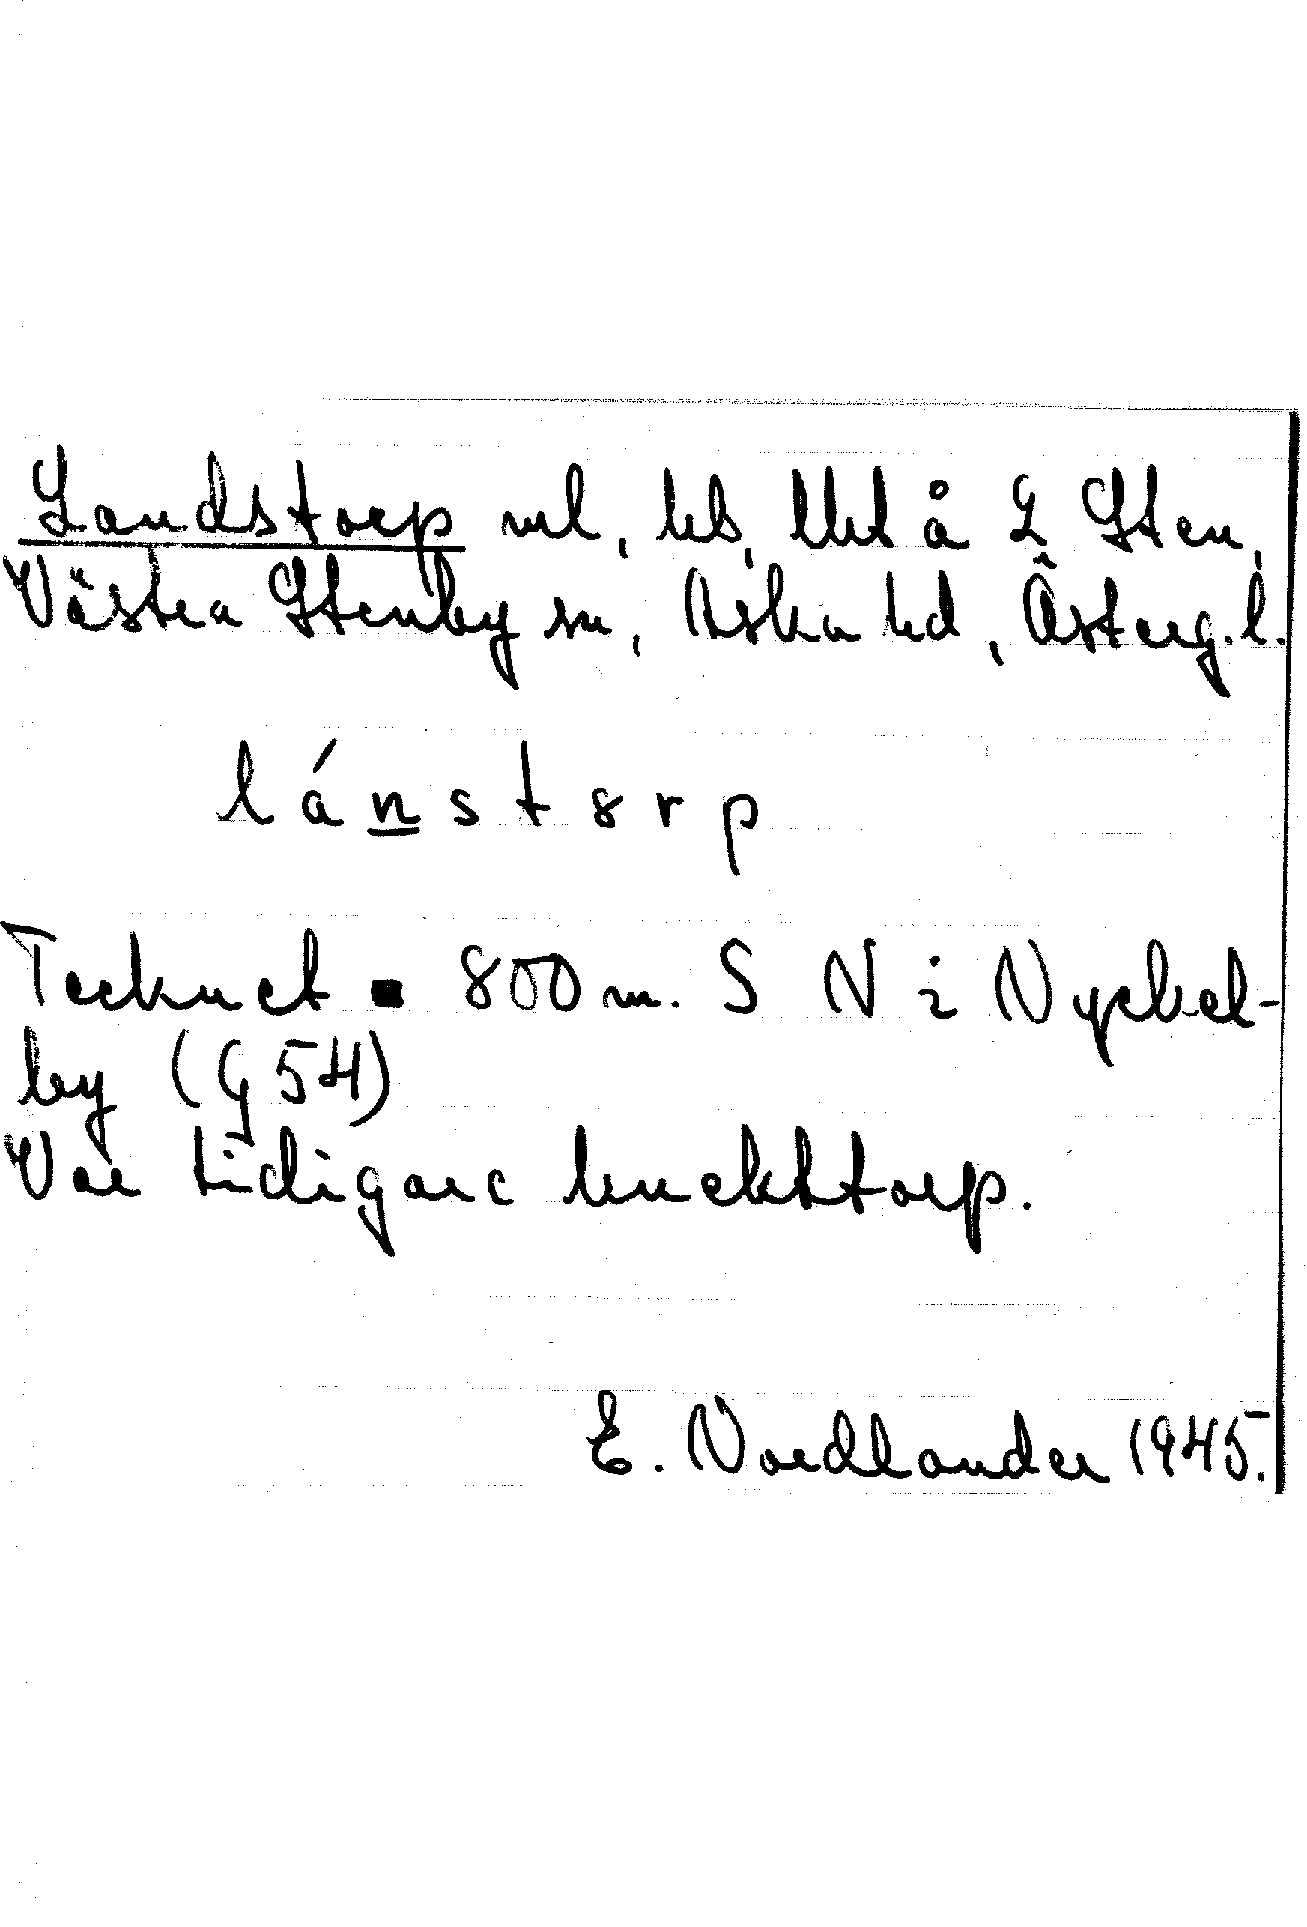 Landstorp ml, hs, llht å L Sten,
Västra Stenby sn, Aska hd, Österg. l.
lánstɵrp
Tecknet ■ 800 m. S N i Nyckel-
by (G 54)
Var tidigare brukttorp.
E. Nordlander 1945.